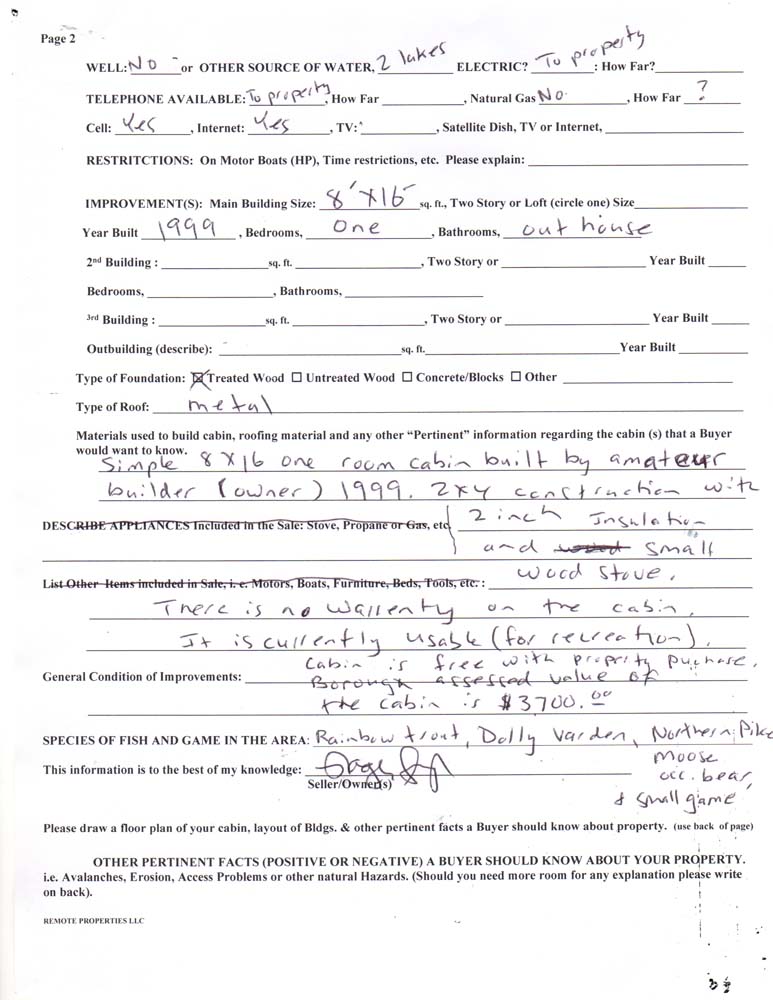 Page 2
WELL: NO or OTHER SOURCE OF WATER, 2 lakes ELECTRIC? To property : How Far?
TELEPHONE AVAILABLE: To property, How Far , Natural Gas No. , How Far ?
Cell: Yes , Internet: Yes , TV: , Satellite Dish, TV or Internet,
RESTRITCTIONS: On Motor Boats (HP), Time restrictions, etc. Please explain:
IMPROVEMENT(S): Main Building Size: 8' X 16 sq. ft., Two Story or Loft (circle one) Size
Year Built 1999 , Bedrooms, One , Bathrooms, out house
2nd Building : sq. ft. , Two Story or Year Built
Bedrooms, , Bathrooms,
3rd Building : sq. ft. , Two Story or Year Built
Outbuilding (describe): sq. ft. Year Built
Type of Foundation: ☒ Treated Wood ☐ Untreated Wood ☐ Concrete/Blocks ☐ Other
Type of Roof: metal
Materials used to build cabin, roofing material and any other “Pertinent” information regarding the cabin (s) that a Buyer
would want to know.
Simple 8 X 16 one room cabin built by amateur
builder (owner) 1999. 2x4 construction with
DESCRIBE APPLIANCES Included in the Sale: Stove, Propane or Gas, etc 2 inch Insulation
and wood small
List Other Items included in Sale, i. e. Motors, Boats, Furniture, Beds, Tools, etc. : wood stove.
There is no Warrenty on the cabin.
It is currently usable (for recreation).
Cabin is free with property puchase.
General Condition of Improvements: Borough assessed value of
the cabin is $3700.00
SPECIES OF FISH AND GAME IN THE AREA: Rainbow trout, Dolly Varden, Northern Pike
moose
This information is to the best of my knowledge:
occ. bear,
Seller/Owner(s)
& small game
Please draw a floor plan of your cabin, layout of Bldgs. & other pertinent facts a Buyer should know about property. (use back of page)
OTHER PERTINENT FACTS (POSITIVE OR NEGATIVE) A BUYER SHOULD KNOW ABOUT YOUR PROPERTY.
i.e. Avalanches, Erosion, Access Problems or other natural Hazards. (Should you need more room for any explanation please write
on back).
REMOTE PROPERTIES LLC